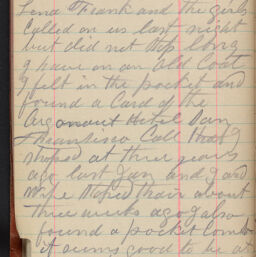 Lena Frank and the girls
called on us last night
but did not stop long
I have on an old Coat
I felt in the pocket and
found a Card of the
Argonaut Hotel San
Fransisco Call that I
stoped at three years
ago last Jan and I and
wife stoped thair about
three weeks ago I also
found a pocket Comb
it seems good to be at